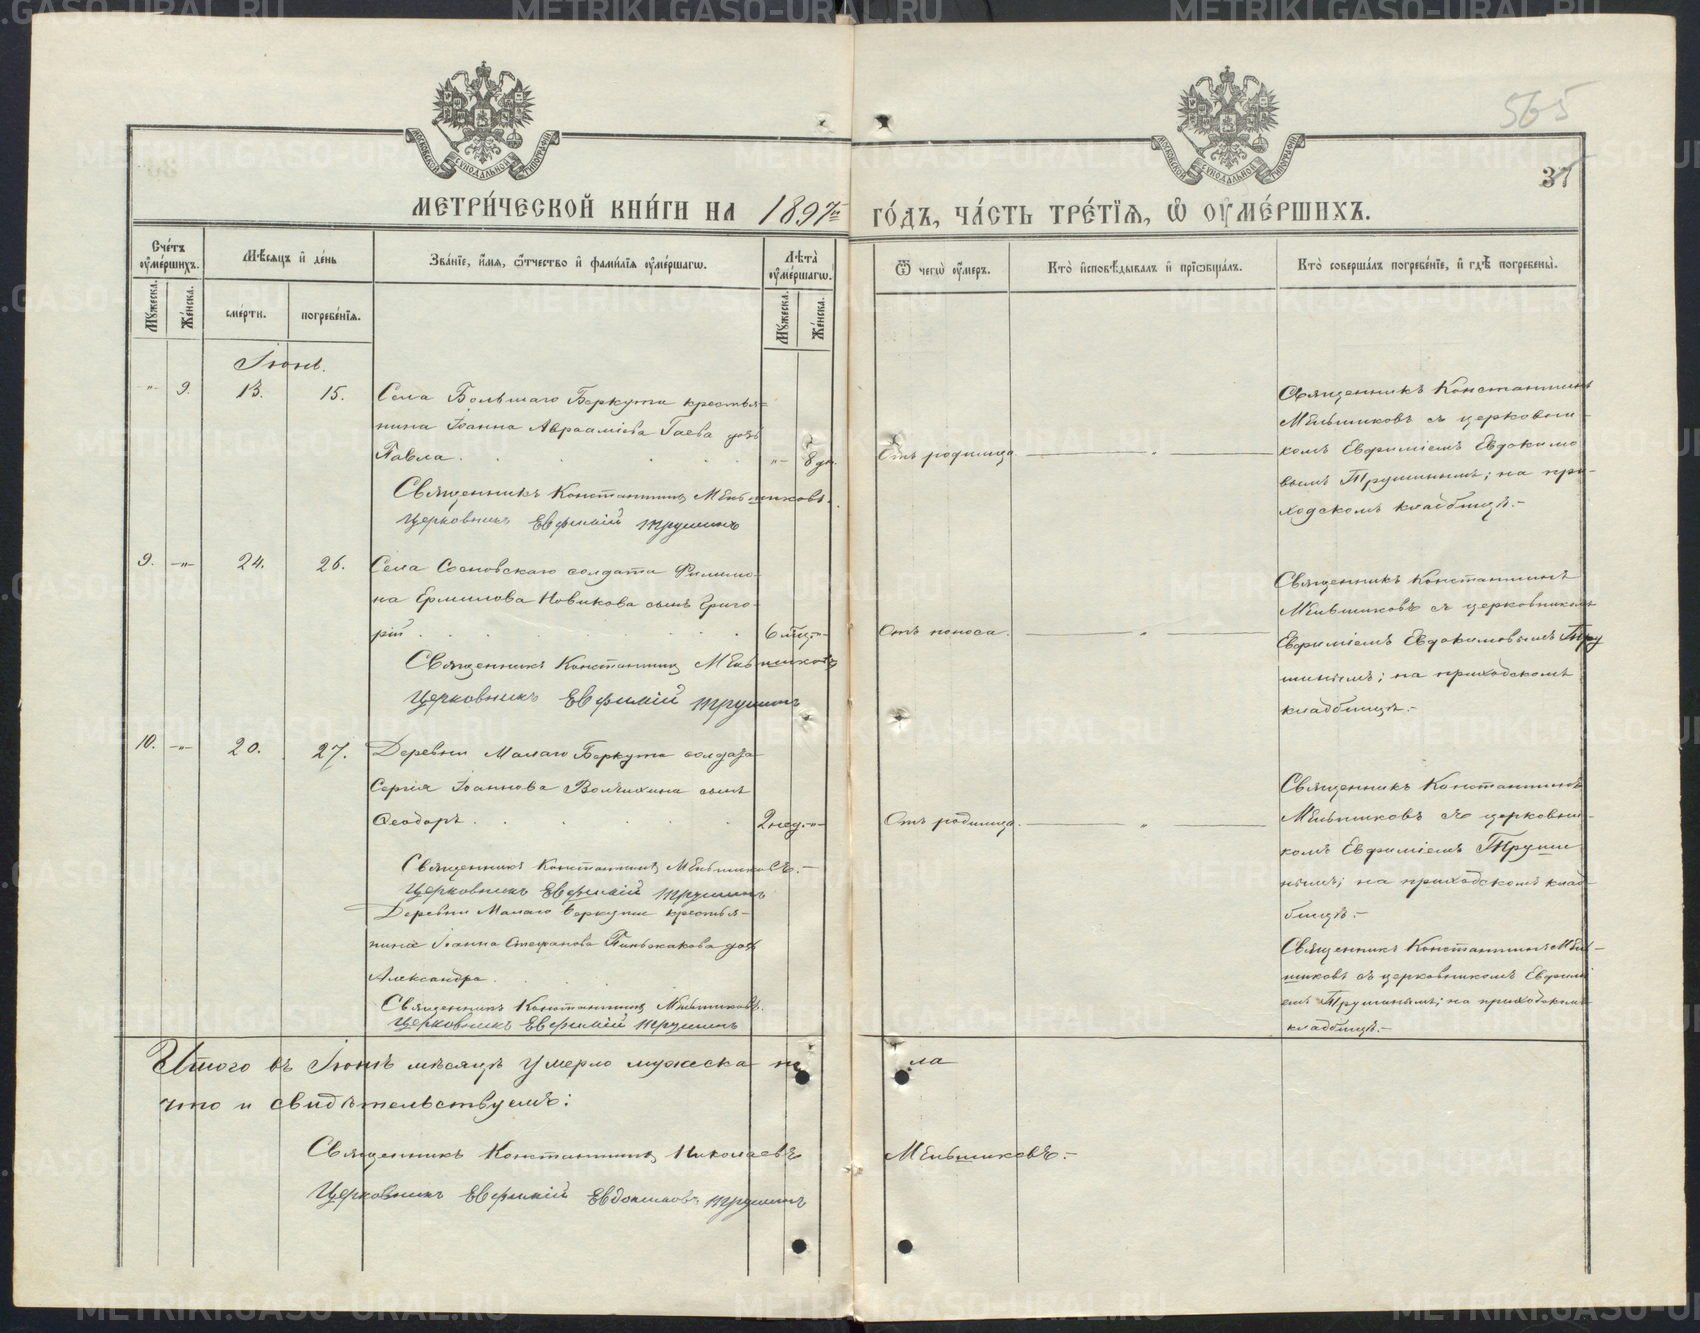 565
37
МЕТРИ́ЧЕСКОЙ КНИ́ГИ НА 1897й ГО́ДЪ, ЧА́СТЬ ТРЕ́ТЇѦ, Ѡ҆ ОУ҆МЕ́РШИХЪ.
Сче́тъ оу҆ме́ршихъ.
Мꙋ́жеска.
Же́нска.
Мѣ́сяцъ и҆ де́нь
сме́рти.
погребе́нїѧ.
Зва́нїе, и҆́мѧ, ѻ҆́тчество и҆ фами́лїѧ оу҆ме́ршагѡ.
Лѣ́та оу҆ме́ршагѡ.
Мꙋ́жеска.
Же́нска.
Ѿ чегѡ̀ оу҆́меръ.
Кто̀ и҆сповѣ́дывалъ и҆ прїѡбща́лъ.
Кто̀ соверша́лъ погребе́нїе, и҆ гдѣ̀ погребены̀.
Іюнь.
-"- 9. 13. 15. Села Большаго Беркута крестья=
нина Іоанна Авраамїева Гаева дочь
Павла. -"- 8 дн. Отъ родимца
Священникъ Константинъ Мѣньшиковъ.
Церковникъ Евфимій Трушинъ
Священникъ Константинъ
Мѣньшиковъ съ церковни-
комъ Евфиміемъ Евдокимо
вымъ Трушинымъ; на при-
ходскомъ кладбищѣ.-
9. -"- 24. 26. Села Сосновскаго солдата Филимо-
на Ермилова Новикова сынъ Григо-
рій 6 мѣц. -"- Отъ поноса.
Священникъ Константинъ Мѣньшиковъ
Церковникъ Евфимій Трушинъ
Священникъ Константинъ
Мѣньшиковъ съ церковникомъ
Евфиміемъ Евдокимовымъ Тру
шинымъ; на приходскомъ
кладбищѣ.-
10. -"- 20. 27. Деревни Малаго Беркута солдата
Сергія Іоаннова Волчихина сынъ
Ѳеодоръ 2 нед. -"- Отъ родимца.
Священникъ Константинъ Мѣньшиковъ.-
Церковникъ Евфимій Трушинъ
Священникъ Константинъ
Мѣньшиковъ съ церковни-
комъ Евфиміемъ Труши
нымъ; на приходскомъ клад-
бищѣ.-
Деревни Малаго Беркута крестья-
нина Іоанна Стефанова дочь
Александра.
Священникъ Константинъ Мѣньшиковъ.
Церковникъ Евфимій Трушинъ
Священникъ Константинъ Мѣнь-
шиковъ съ церковникомъ Евфимі
емъ Трушинымъ; на приходскомъ
кладбищѣ.-
Итого въ Іюнѣ мѣсяцѣ умерло мужеска по ла
что и свидѣтельствуемъ:
Священникъ Константинъ Николаевъ Мѣньшиковъ.-
Церковникъ Евфимій Евдокимовъ Трушинъ